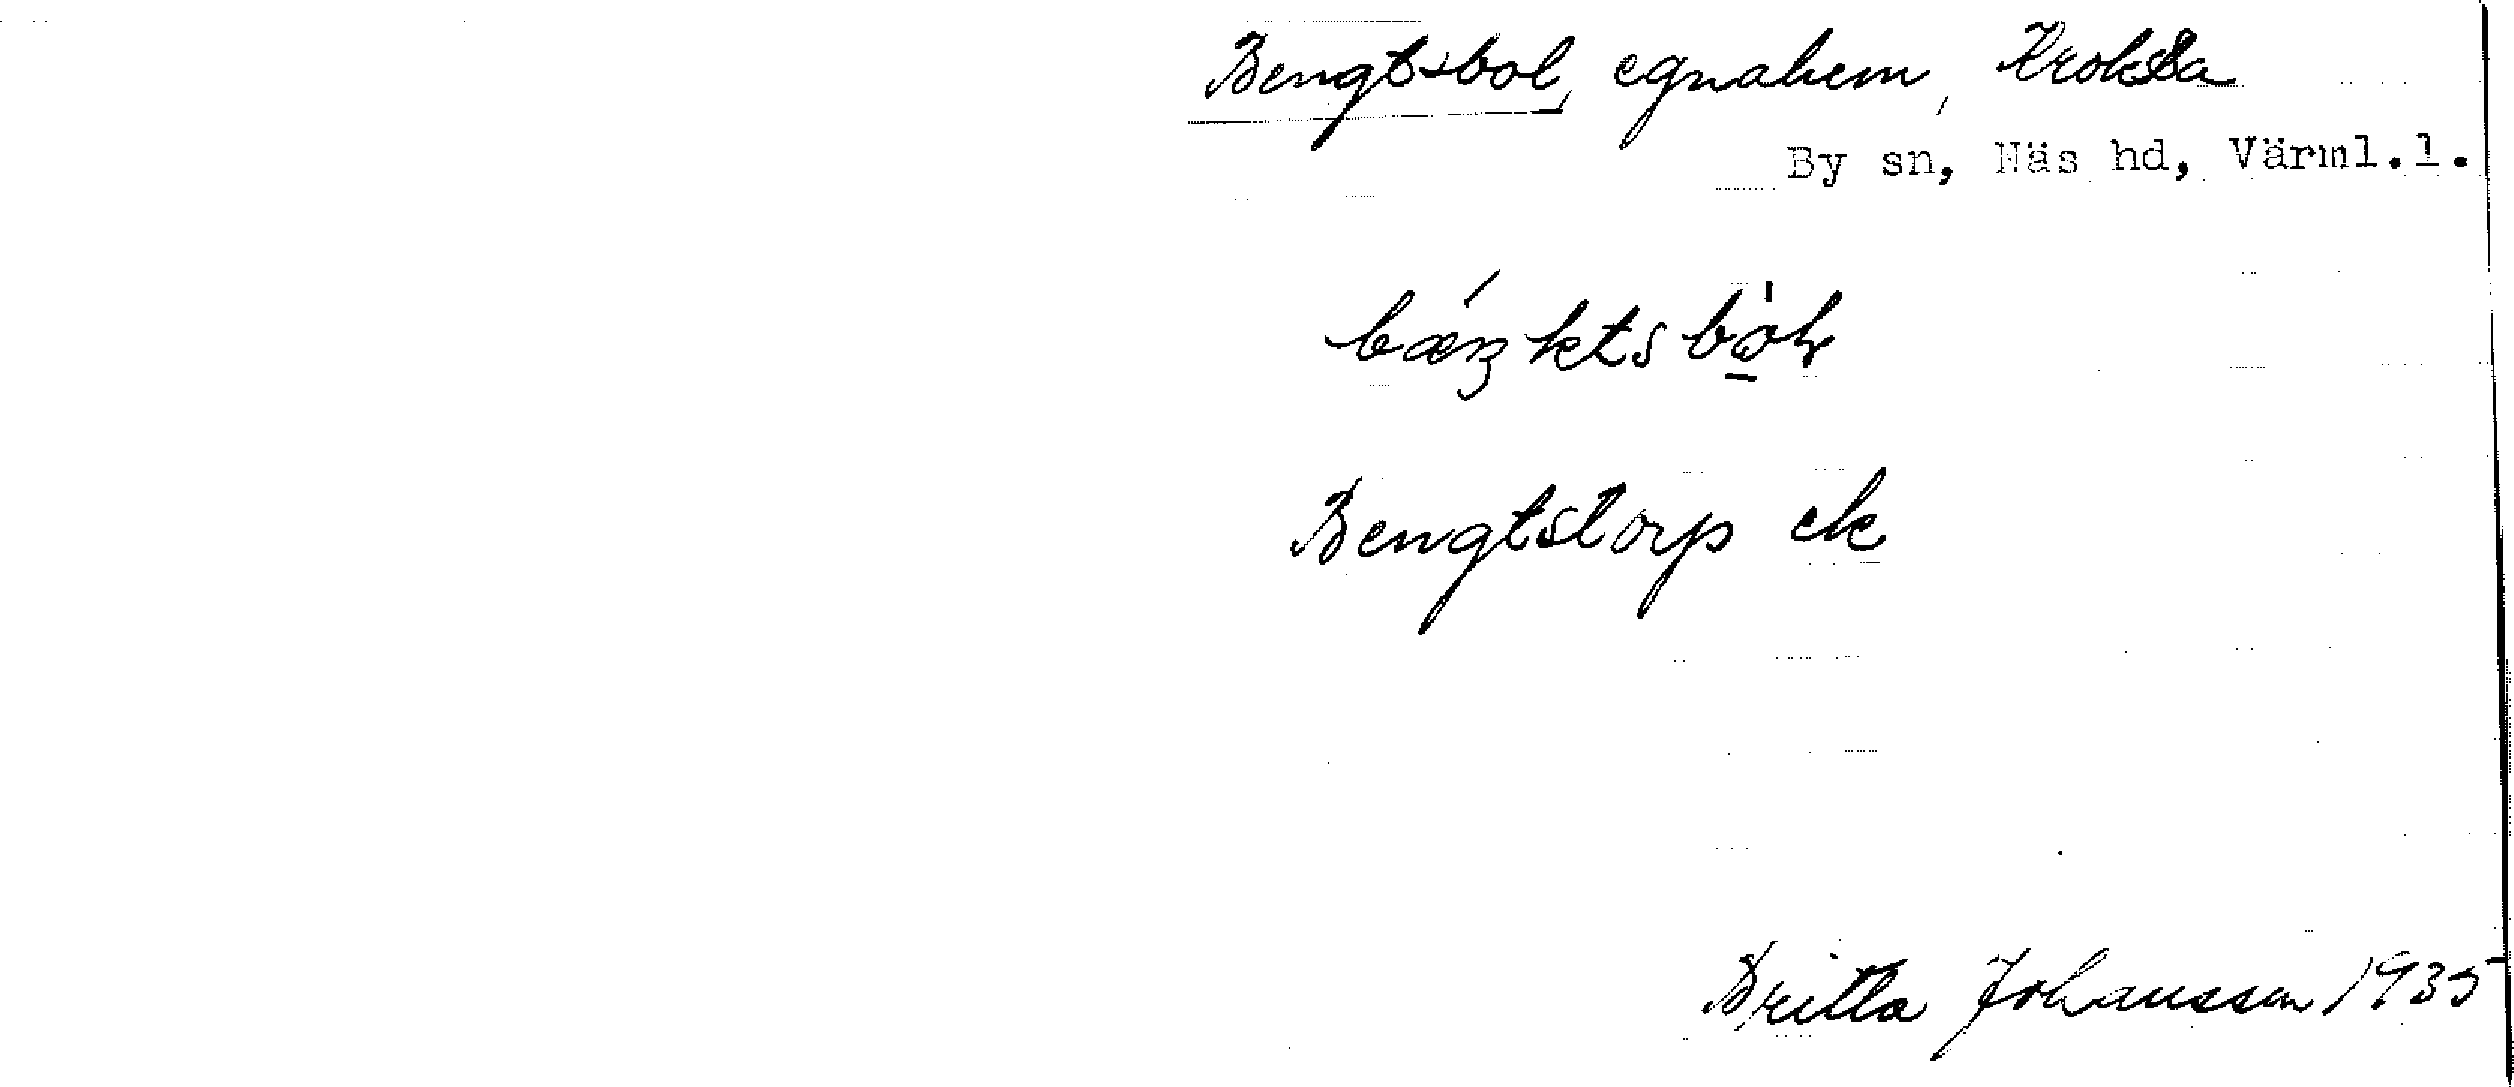 Bengtsbol, egnahem, Kroksta
By sn, Näs hd, Värml.l.
Bengtstorp ek
Britta Johansson 1935